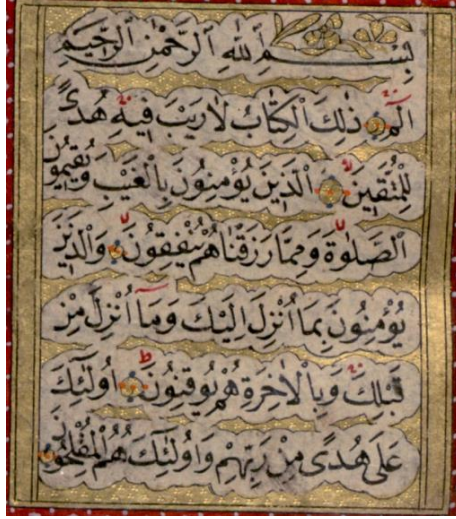 بِسْمِ اللهِ الرَّحْمٰنِ الرَّحِيمِ
الٓمٓ ذٰلِكَ الْكِتَابُ لَا رَيْبَ فِيهِ هُدًى
لِلْمُتَّقِينَ الَّذِينَ يُؤْمِنُونَ بِالْغَيْبِ وَيُقِيمُونَ
الصَّلٰوةَ وَمِمَّا رَزَقْنَاهُمْ يُنْفِقُونَ وَالَّذِينَ
يُؤْمِنُونَ بِمَا اُنْزِلَ اِلَيْكَ وَمَآ اُنْزِلَ مِنْ
قَبْلِكَ وَبِالْاٰخِرَةِ هُمْ يُوقِنُونَ اُولٰٓئِكَ
عَلٰى هُدًى مِنْ رَبِّهِمْ وَاُولٰٓئِكَ هُمُ الْمُفْلِحُونَ